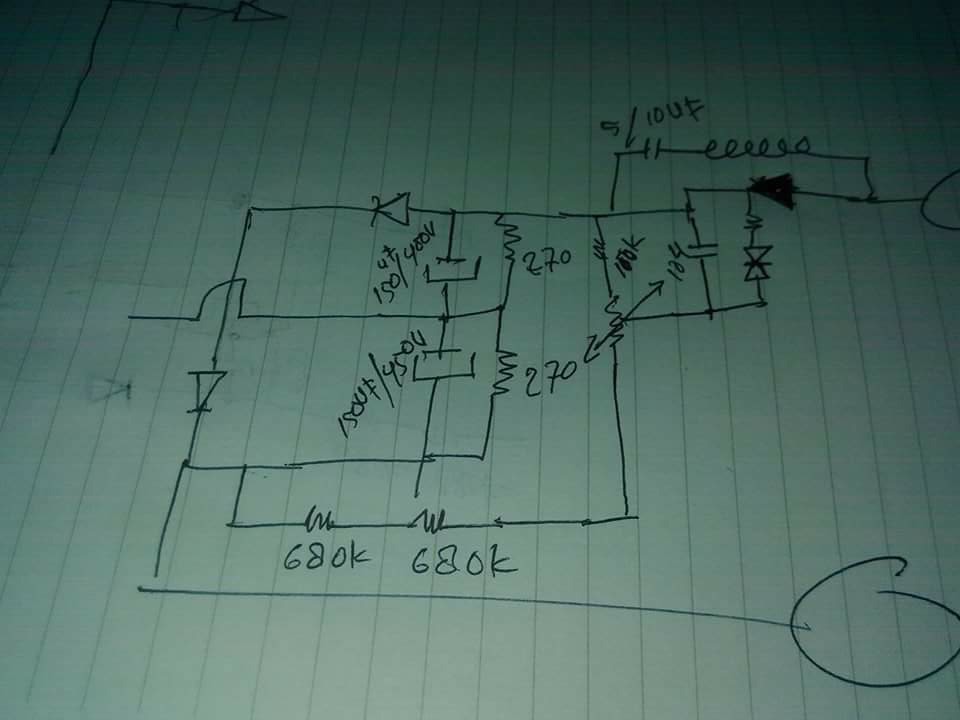 5/10uf
150uf/400V
270
100k
.01
150uf/450V
270
680k
680k